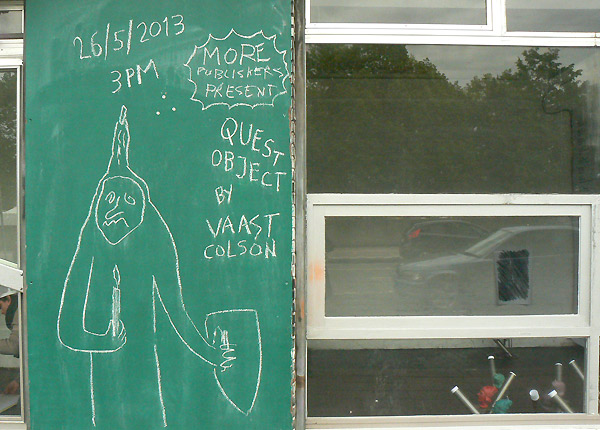 26/5/2013
3PM
MORE
PUBLISHERS
PRESENT
QUEST
OBJECT
BY
VAAST
COLSON